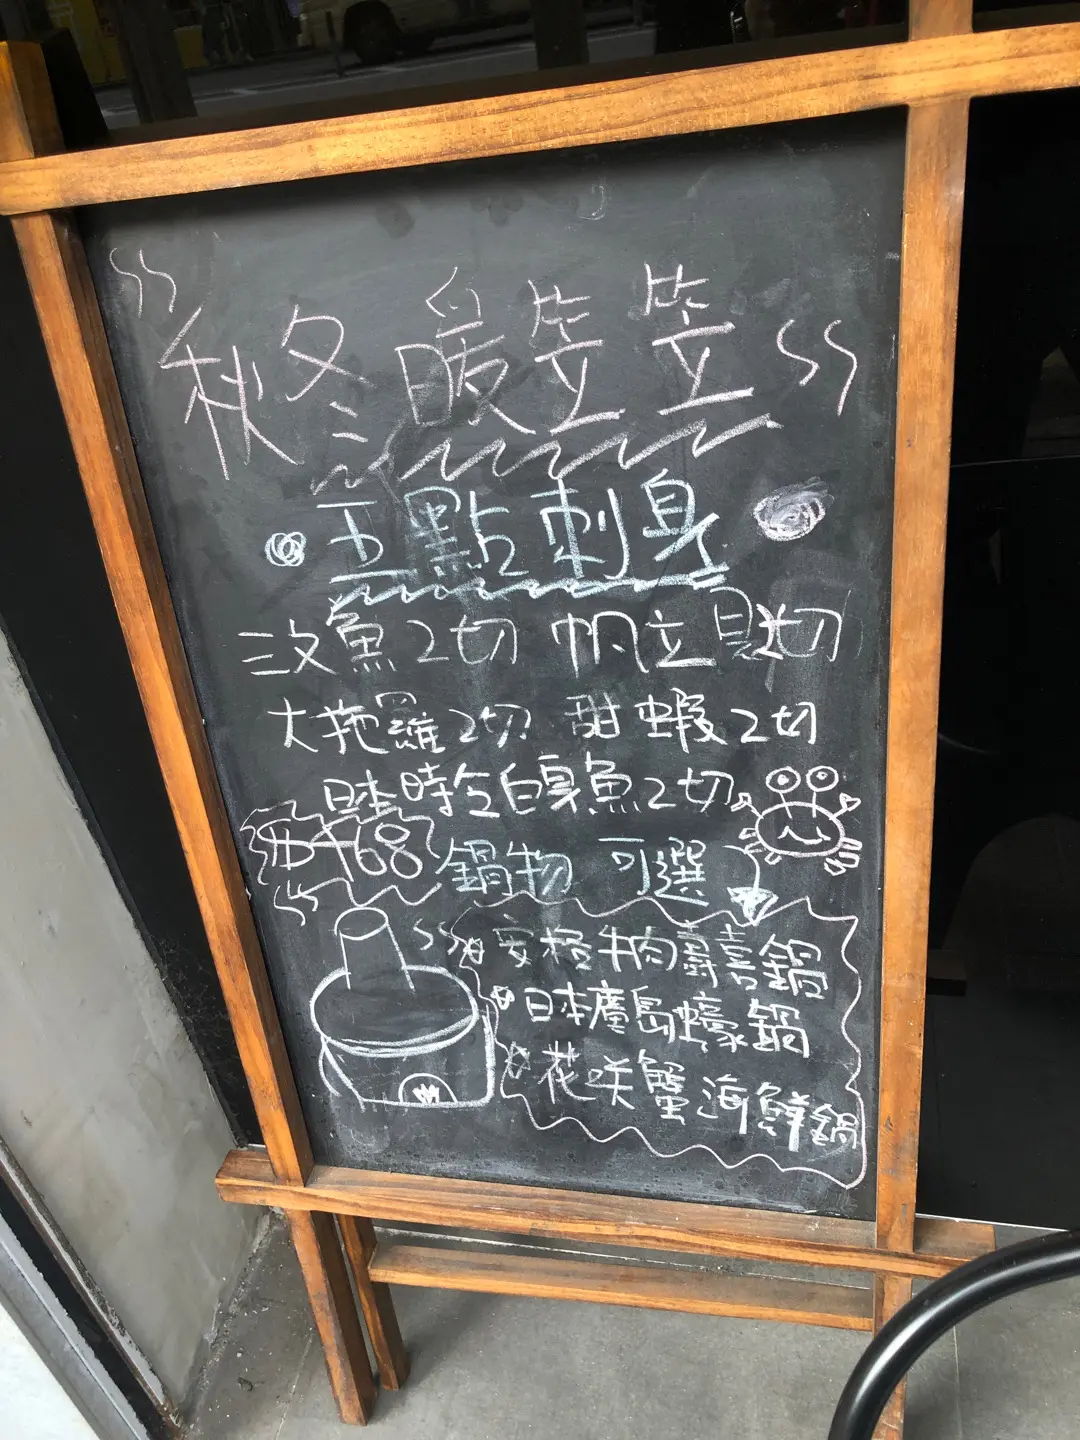 秋冬暖笠笠
五點刺身
三文魚2切 帆立貝2切
大拖羅2切 甜蝦2切
日本時令白身魚2切
鍋物 可選
安格牛肉壽喜鍋
日本廣島蠔鍋
花咲蟹海鮮鍋